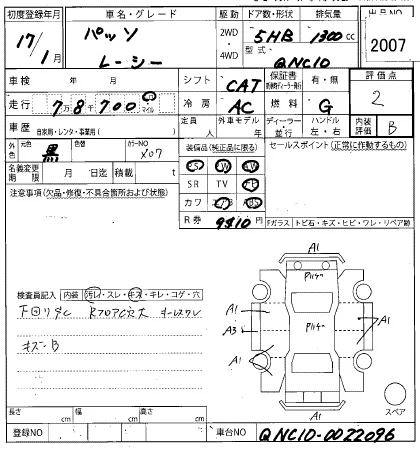 初度登録年月 車名・グレード 駆動 ドア数・形状 排気量 出品NO
17/1 パッソ 2WD 5HB 1300cc 2007
レーシー 4WD 型式 QNC10
車検 年 月 シフト CAT 保証書 有・無 評価点
走行 7万8千700 マイル 冷房 AC 燃料 G 2
車歴 自家用・レンタ・事業用( ) 定員 人 外車モデル 年 ディーラー・並行 ハンドル 左・右 内装評価 B
外色 元色 黒 色替 カラーNO X07 装備品(純正品に限る) セールスポイント(正常に作動するもの)
名義変更期限 月 日迄 積載 t PS PW AW
注意事項(欠品・修復・不具合箇所および状態) SR TV
カワ ABS
R券 9810 Fガラス トビ石・キズ・ヒビ・ワレ・リペア跡
A1
検査員記入 内装 汚レ・スレ・キズ・キレ・コゲ・穴
下回りサビ
A1 A1
A3
キズ-B
A1
A1
長さ cm 幅 cm 高さ cm スペア
登録NO 車台NO QNC10-0022096